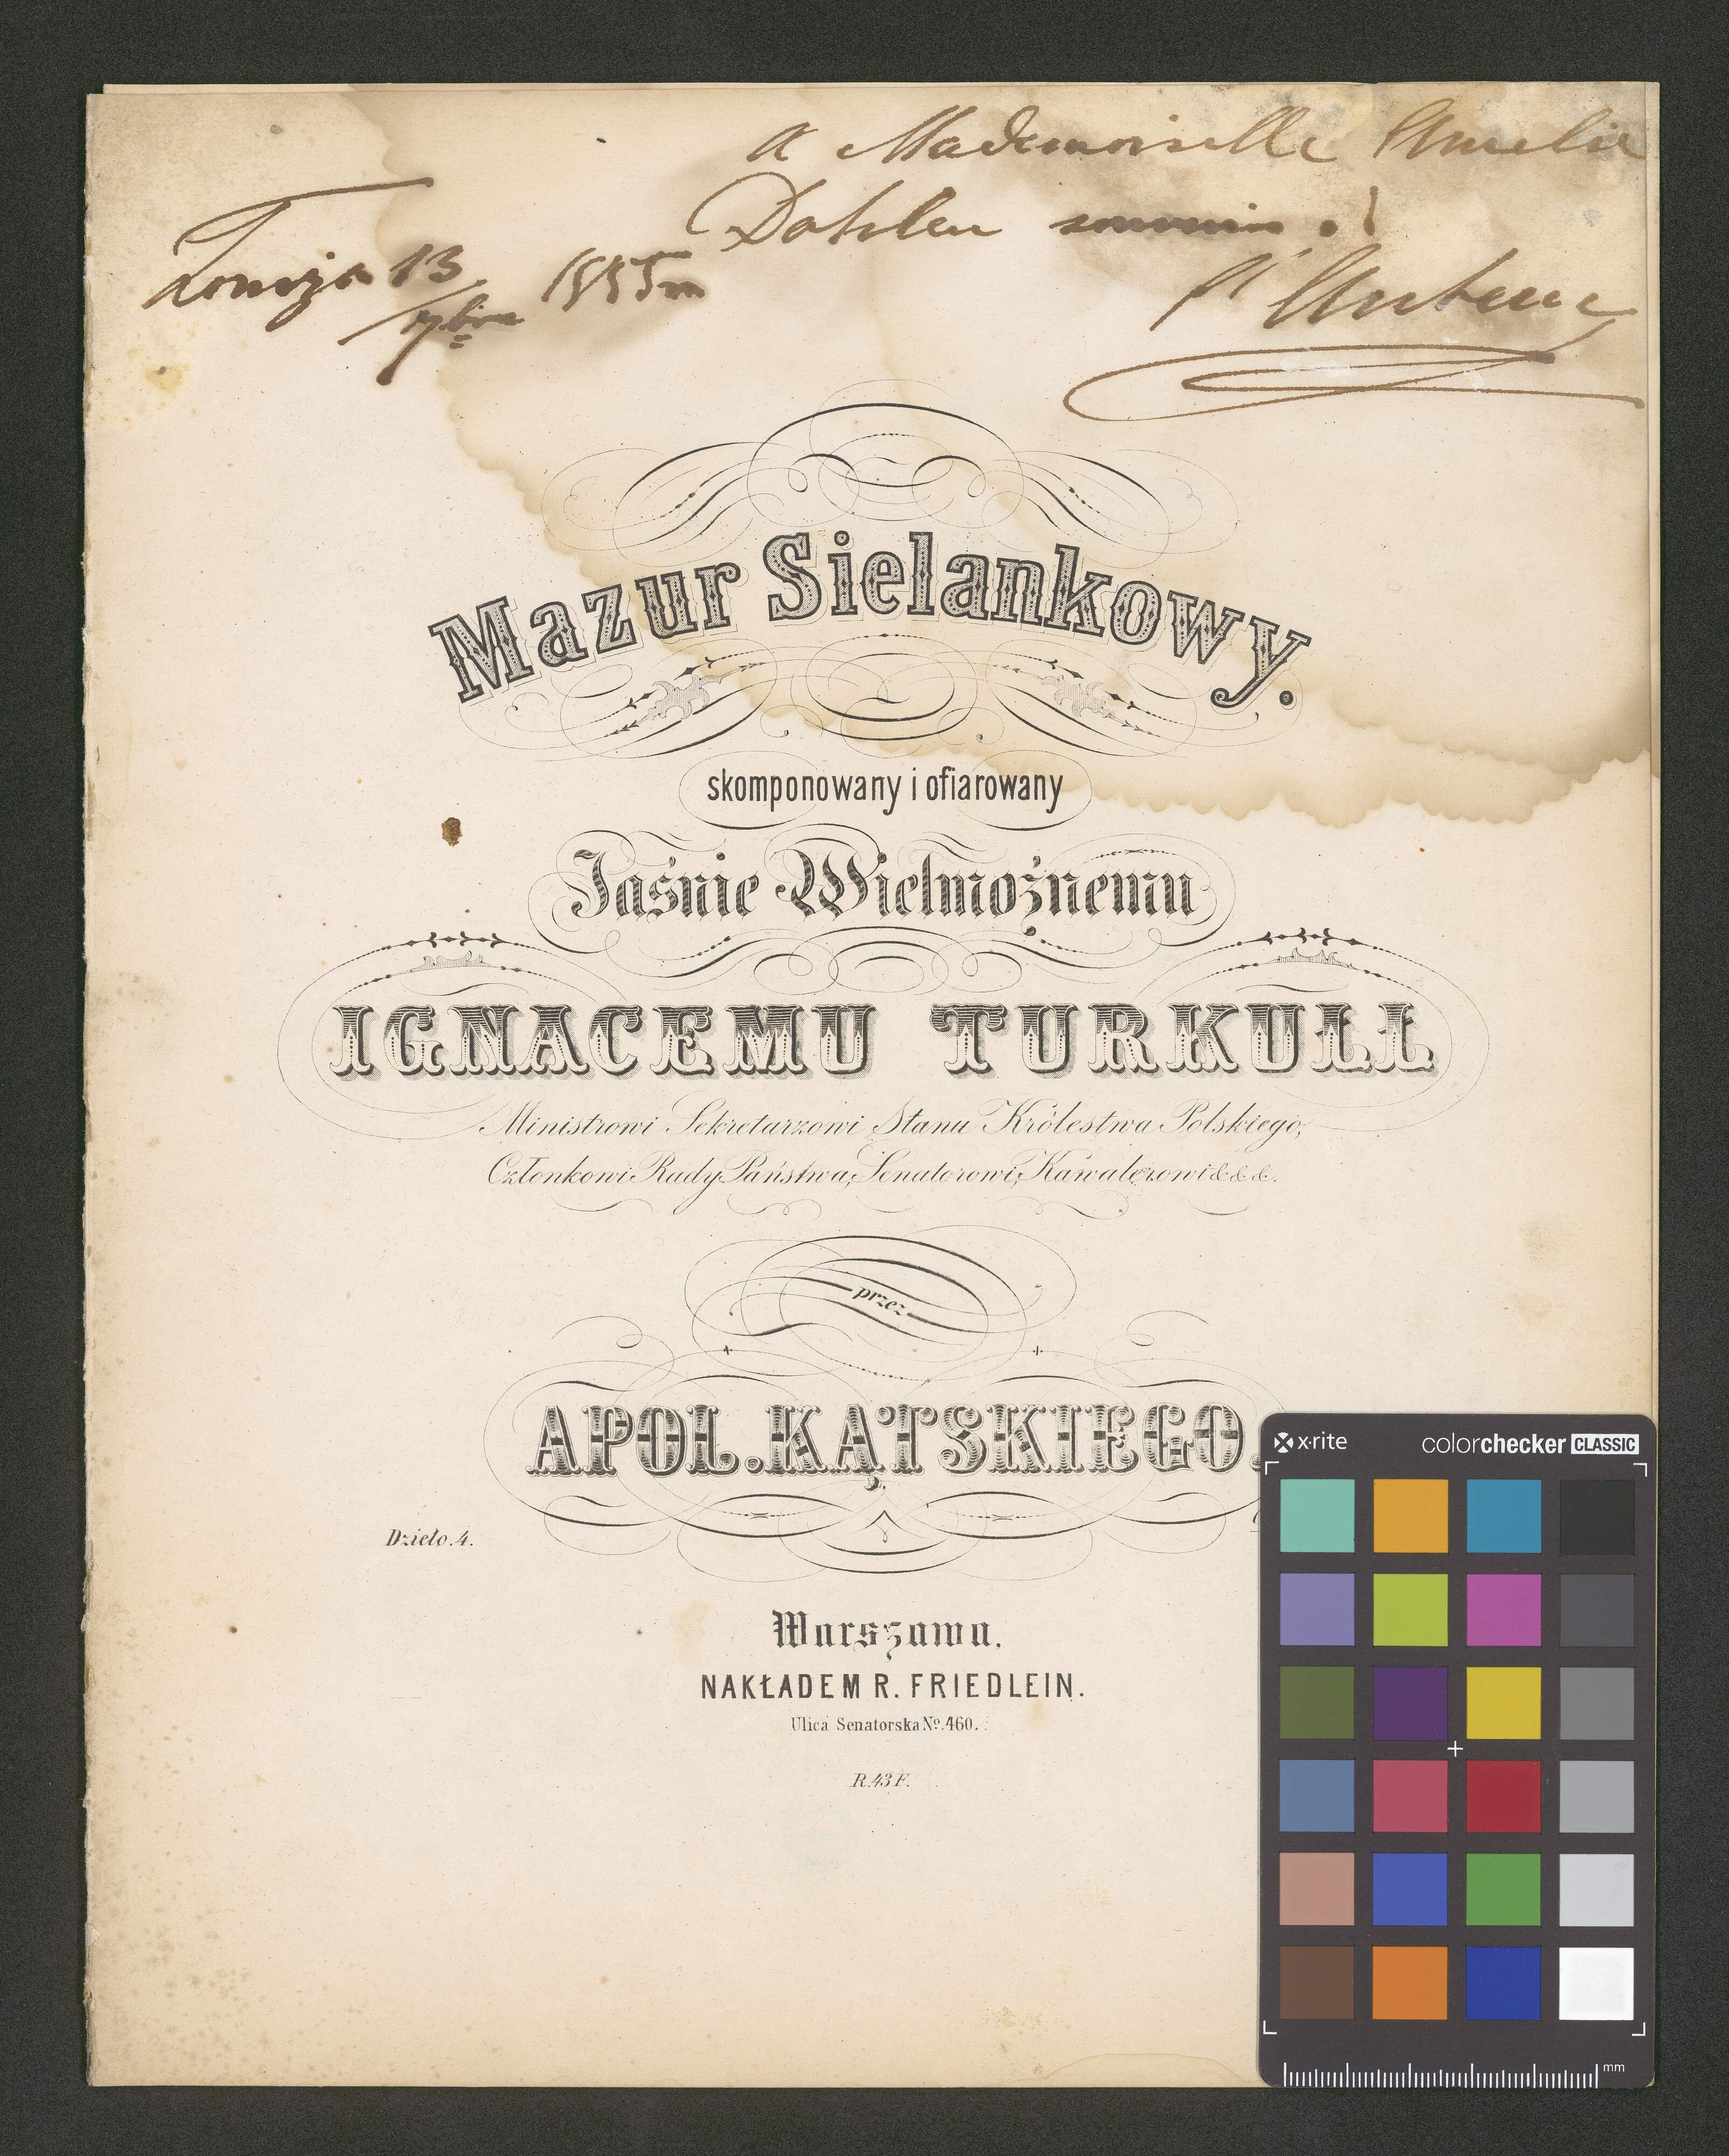 a Mademoiselle Amelie
Dahlen souvenir.!
Łomża 13 1855
l'Auteur
Mazur Sielankowy.
skomponowany i ofiarowany
Jaśnie Wielmożnemu
IGNACEMU TURKUŁŁ
Ministrowi Sekretarzowi Stanu Królestwa Polskiego,
Członkowi Rady Państwa, Senatorowi, Kawalerowi &&&.
przez
APOL. KĄTSKIEGO.
Dzieło. 4.
Warszawa.
NAKŁADEM R. FRIEDLEIN.
Ulica Senatorska No. 460.
R. 43 F.
x-rite
colorchecker CLASSIC
mm